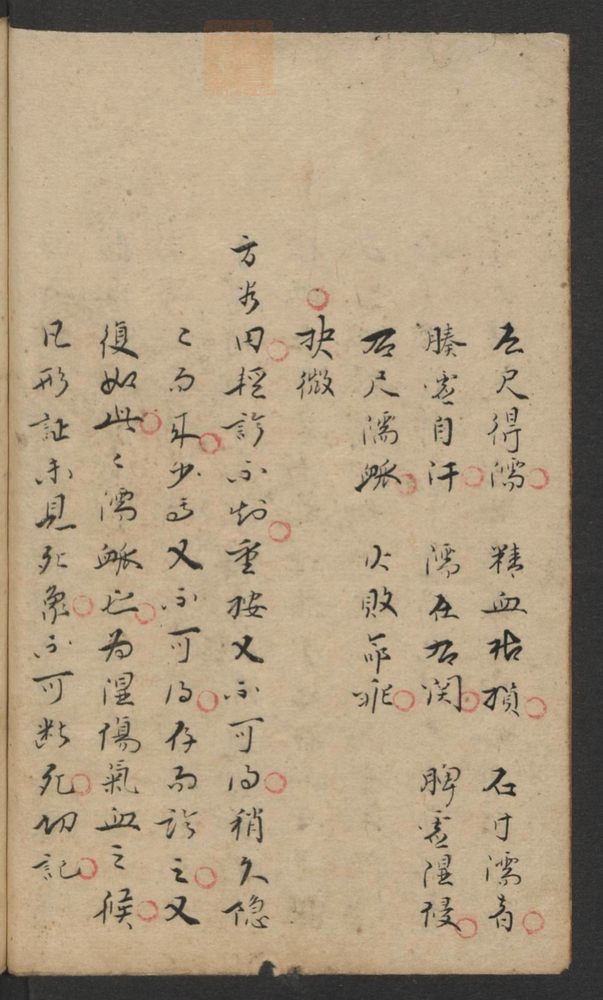 左尺得濡 精血枯損 右寸濡者
腠虚自汗 濡在右関 脾虚湿侵
右尺濡脉 火敗命乖
抉微
方谷曰軽診不即重按又不可得稍久隐
々而來少焉又不可得仔而診之又
復如此々濡脉也為湿傷氣血之候
凡形証未見死象不可断死切記